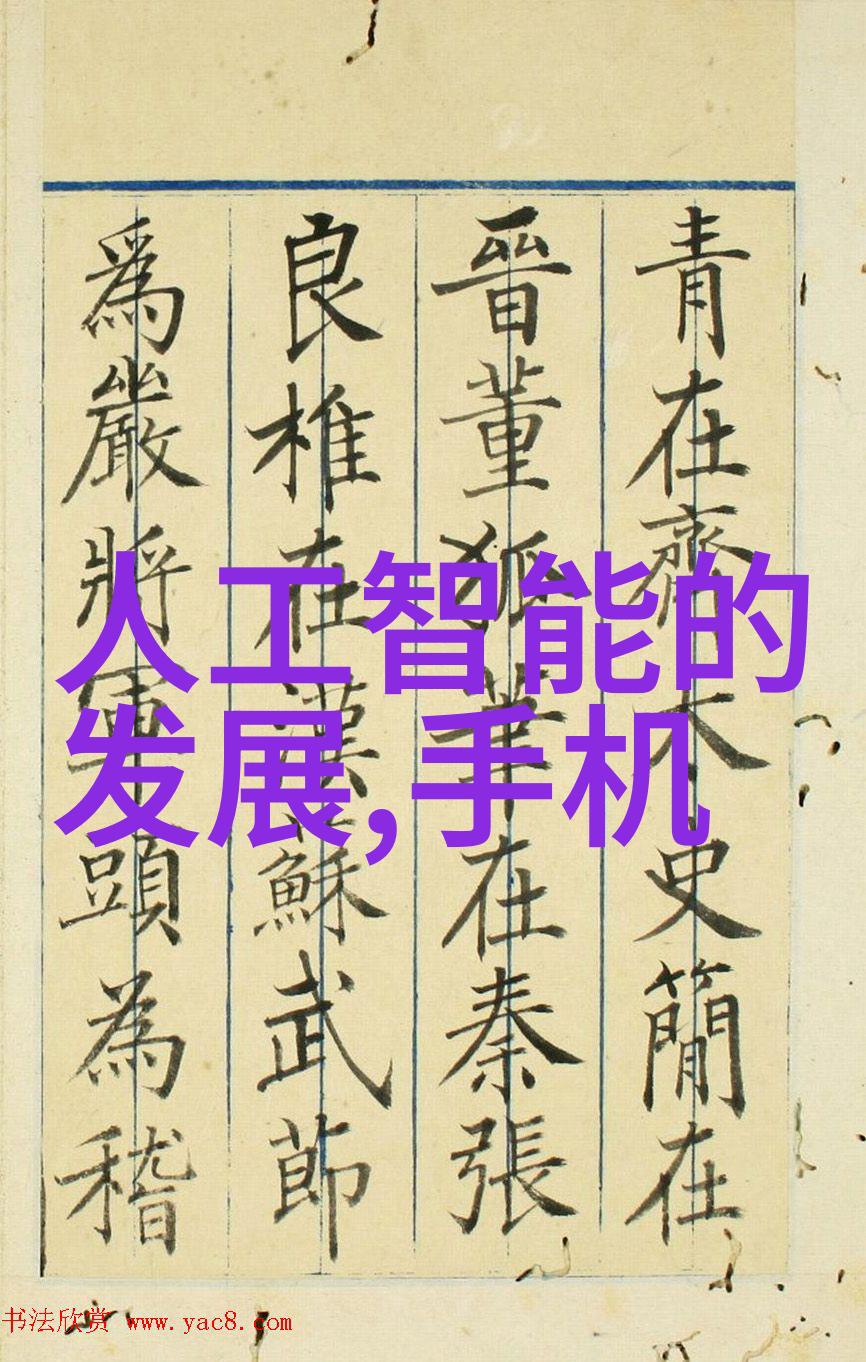 青在齊太史簡在
晉董狐筆在秦張
良椎在漢蘇武節
爲嚴將軍頭為稽
人工智能的
发展,手机
书法欣赏 www.yac8.com